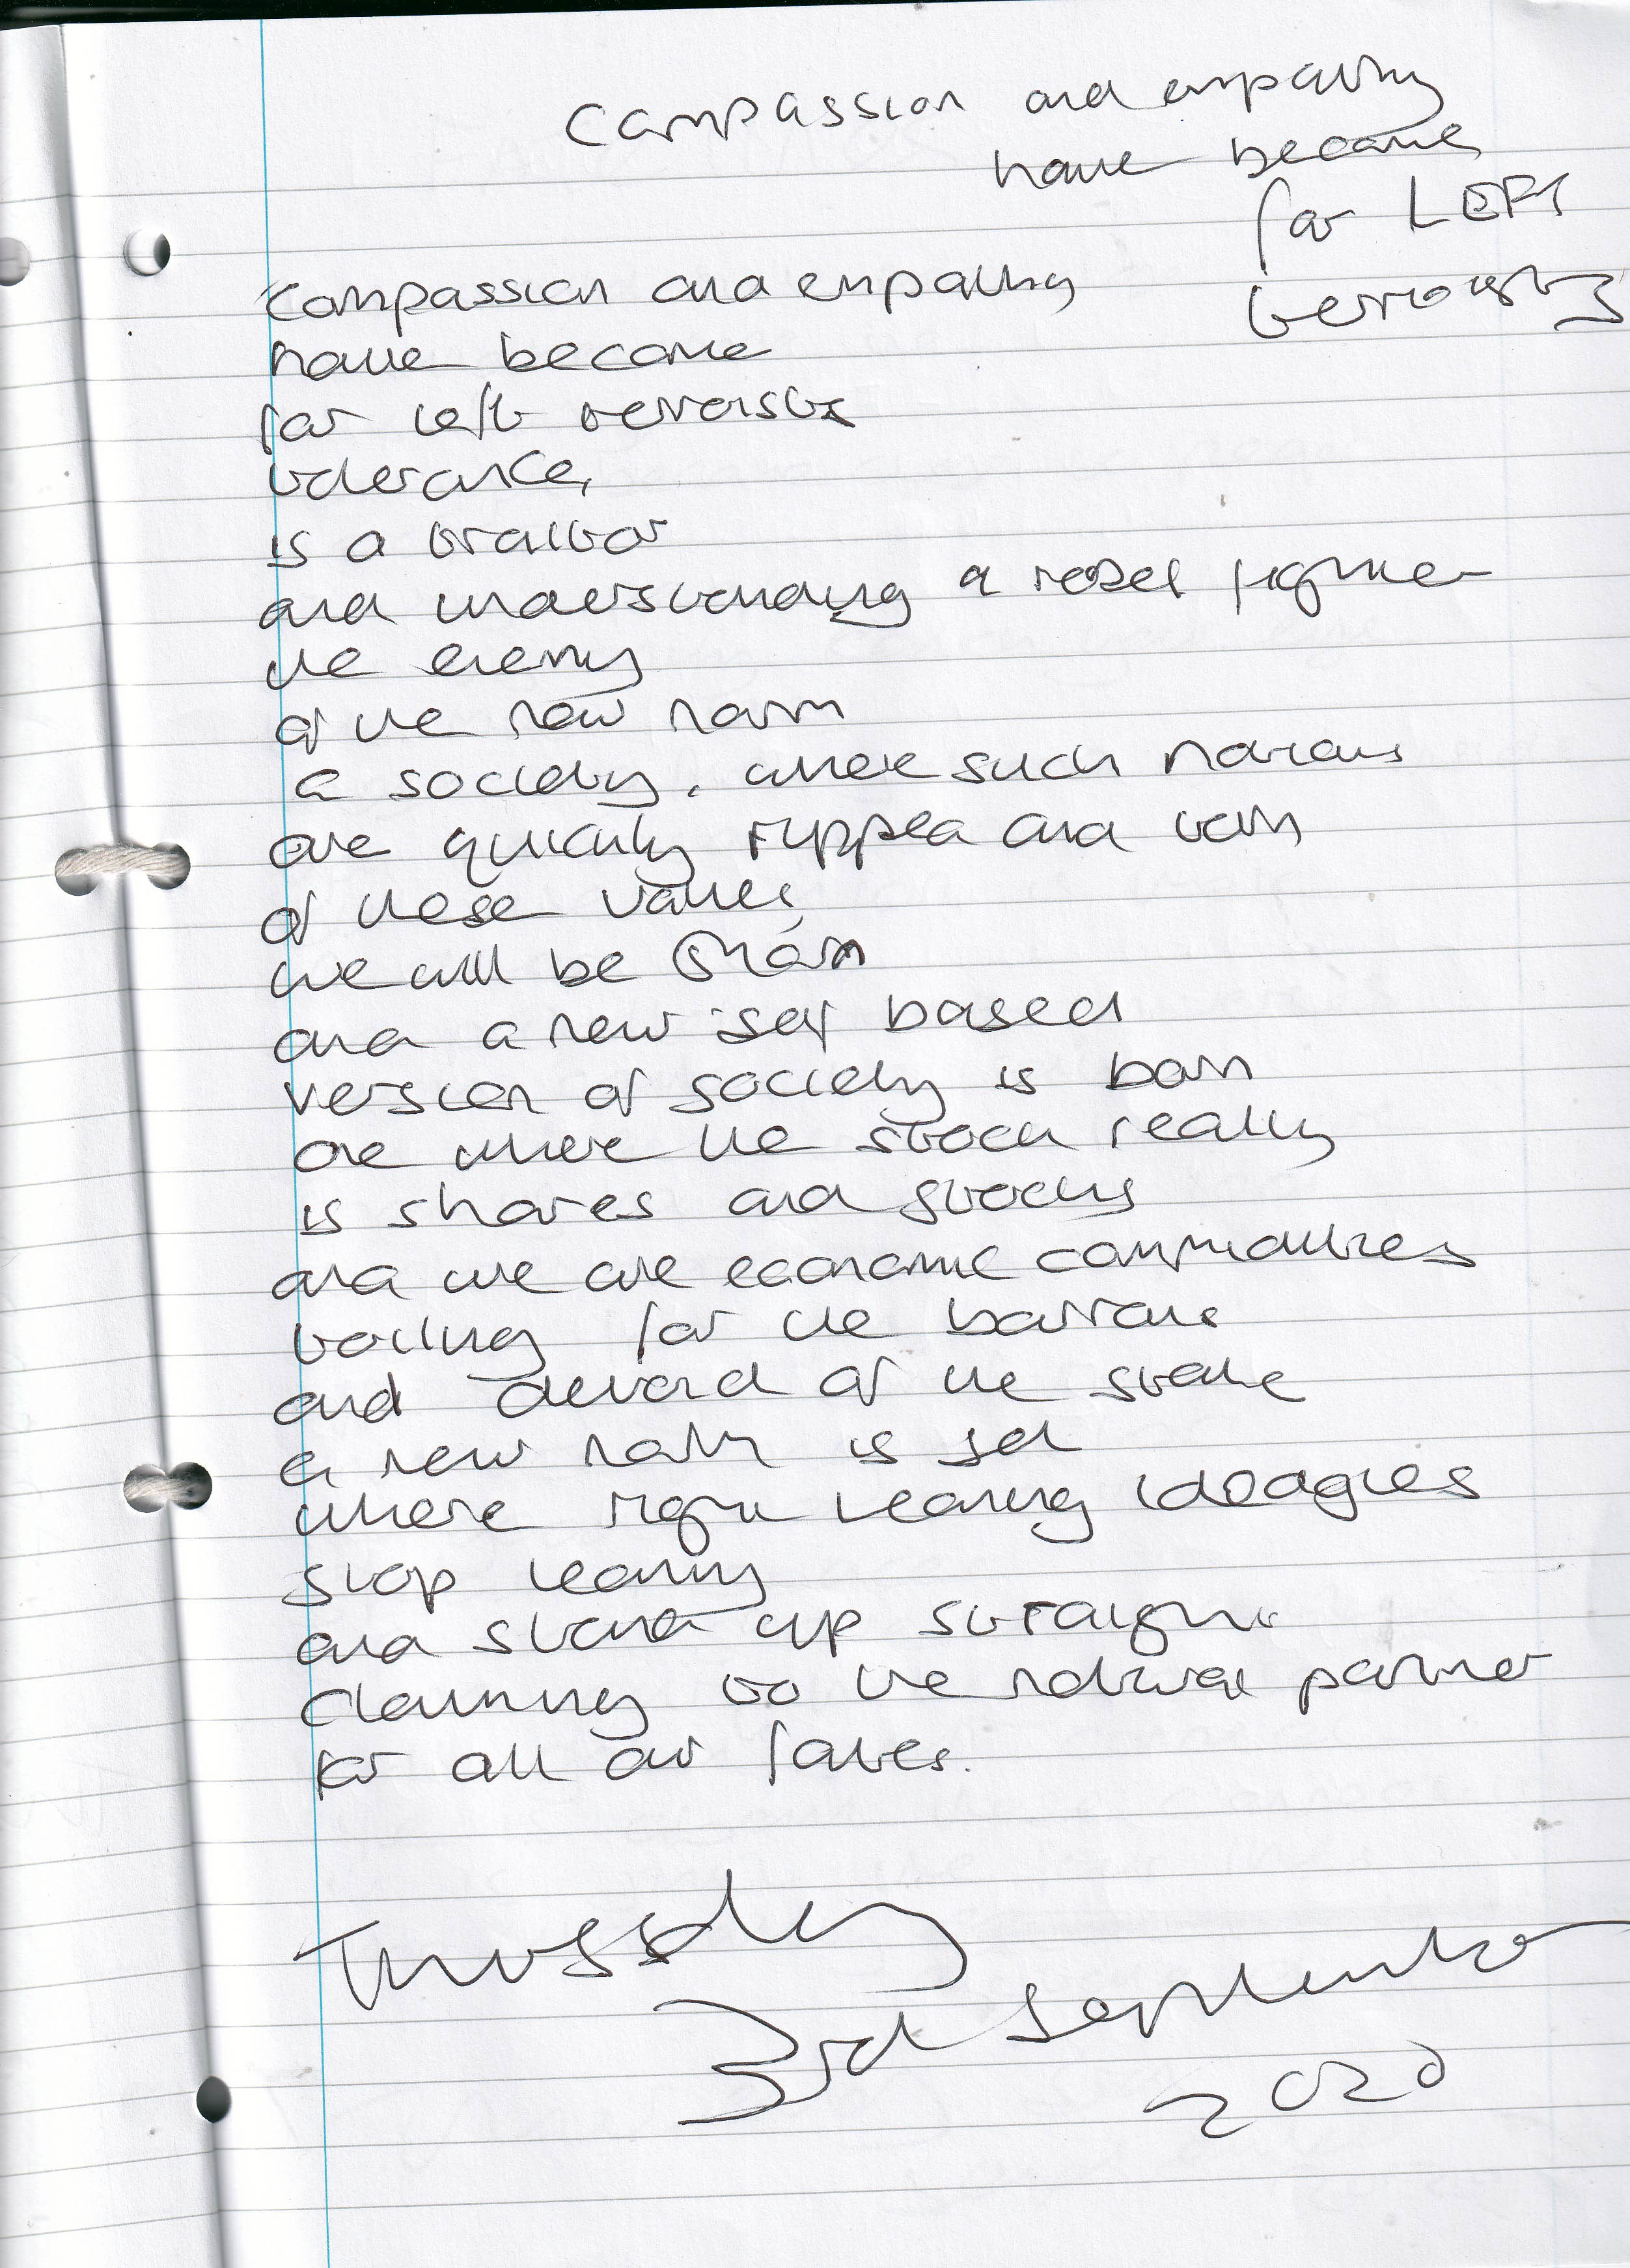 Compassion and empathy
have become
far LEFT
terrorists
Compassion and empathy
have become
far left terrorists
tolerance,
is a traitor
and understanding a rebel fighter
the enemy
of the new norm
a society, where such notions
are quickly ripped and torn
of these values
we will be shorn
and a new self based
version of society is born
one where the stock really
is shares and stocks
and we are economic commodities
toiling for the barrons
and devoid of the state
a new norm is set
where right leaning ideologies
stop leaning
and stand up straight
claiming to the natural partner
for all our fates.
Thursday
3rd September
2020